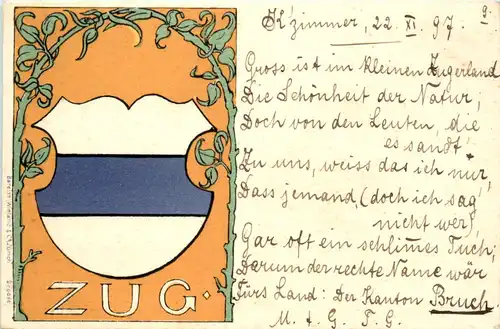 K'zimmer, 22. XI. 97.
Gross ist im kleinen Zugerland
Die Schönheit der Natur,
Doch von den Leuten, die
es sandt
Zu uns, weiss das ich nur,
Dass jemand, (doch ich sag'
nicht wer),
Gar oft ein schlim̄es Tuch,
Darum der rechte Name wär
Fürs Land: Der Kanton Bruch.
M. + G. F. G.
ZUG.